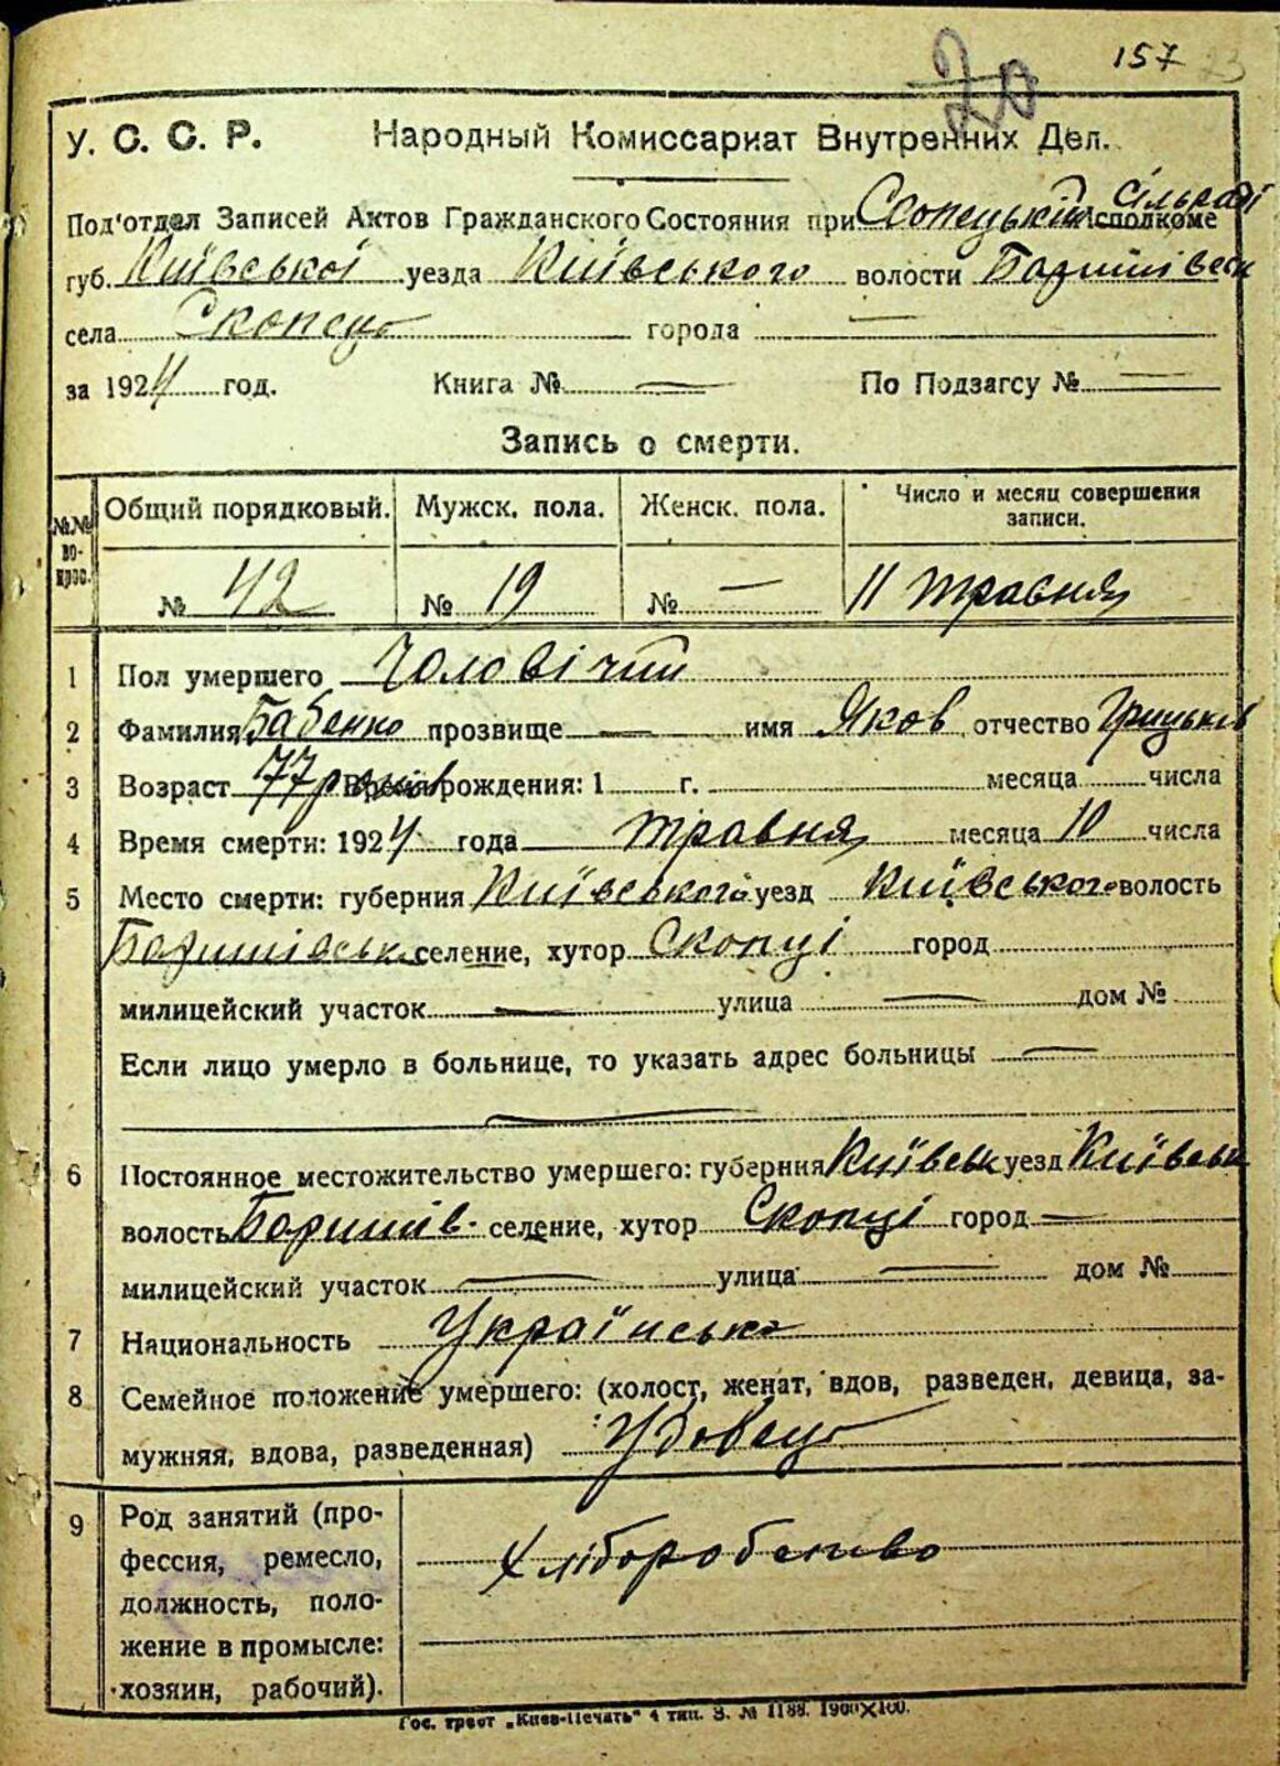 157
20
У. С. С. Р. Народный Комиссариат Внутренних Дел.
Под'отдел Записей Актов Гражданского Состояния при Скопецькій сільраді Исполкоме
губ. Київської уезда Київського волости Баришівськ
села Скопец города —
за 1924 год. Книга № — По Подзагсу № —
Запись о смерти.
№№ во-прос. Общий порядковый. Мужск. пола. Женск. пола. Число и месяц совершения записи.
№ 42 № 19 № — 11 травня
1 Пол умершего Чоловічий
2 Фамилия Бабенко прозвище — имя Яков отчество Грицьків
3 Возраст 77 років Время рождения: 1 г. месяца числа
4 Время смерти: 1924 года травня месяца 10 числа
5 Место смерти: губерния Київського уезд Київського волость
Баришівськ селение, хутор Скопці город
милицейский участок — улица — дом №
Если лицо умерло в больнице, то указать адрес больницы —
—
6 Постоянное местожительство умершего: губерния Київськ уезд Київськ
волость Баришів. селение, хутор Скопці город —
милицейский участок — улица — дом №
7 Национальность Українська
8 Семейное положение умершего: (холост, женат, вдов, разведен, девица, за-
мужняя, вдова, разведенная) Удовец
9 Род занятий (про-
фессия, ремесло, Хліборобство
должность, поло-
жение в промысле:
хозяин, рабочий).
Гос. трест „Киев-Печать“ 4 тип. З. № 1188. 1900×100.